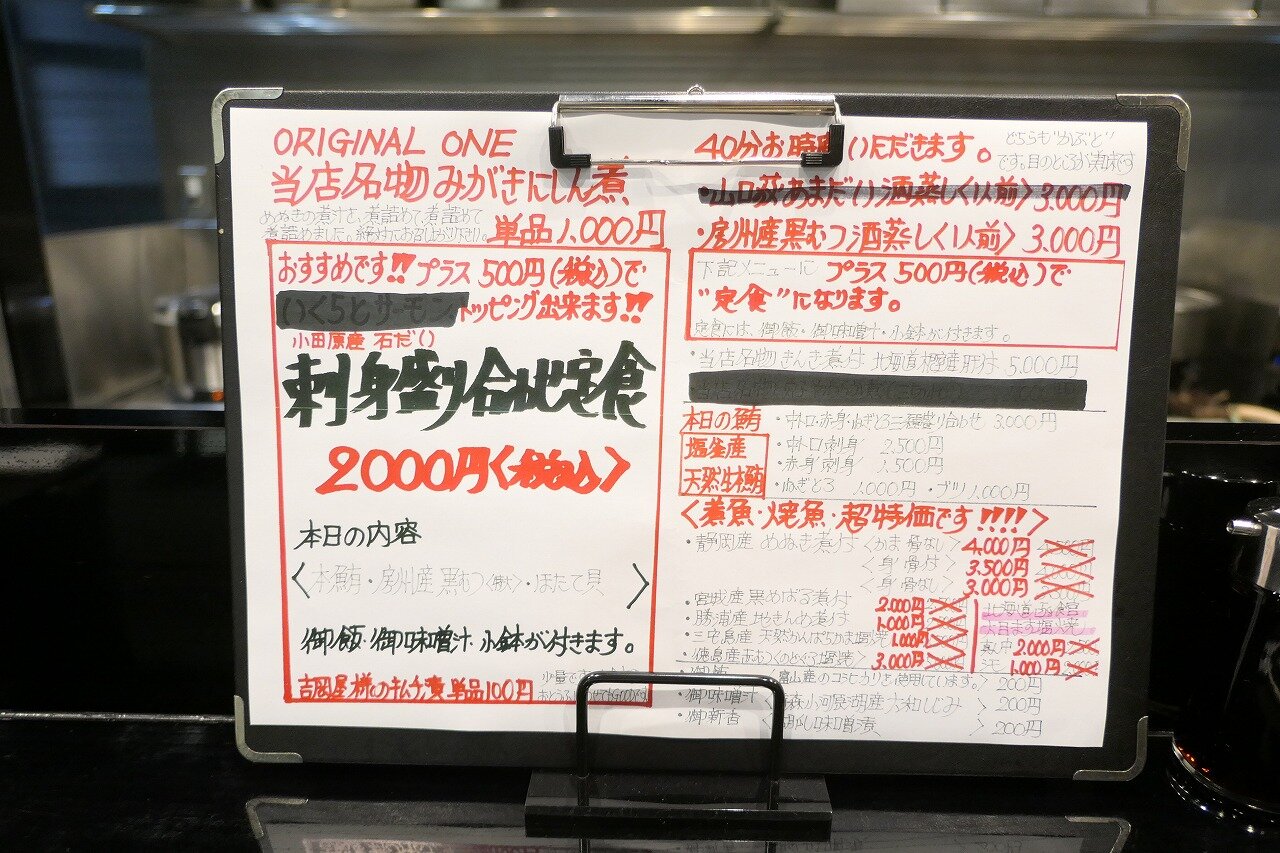 ORIGINAL ONE
当店名物みがきにしん煮
めぬきの煮汁を、煮詰めて煮詰めて
煮詰めました。絶対にお召し上がり下さい。
単品1,000円
おすすめです!!プラス500円(税込)で
いくらとサーモントッピング出来ます!!
小田原産 石だい
刺身盛り合わせ定食
2000円〈税込〉
本日の内容
〈本鮪・房州産黒むつ・ほたて貝〉
御飯・御味噌汁・小鉢が付きます。
吉岡屋様のキムチ漬 単品100円
40分お時間いただきます。
どちらも"かぶと"
です。目のところが美味です
・山口萩あまだい酒蒸し〈1人前〉3,000円
・房州産黒むつ酒蒸し〈1人前〉3,000円
下記メニューに プラス500円(税込)で
"定食"になります。
定食には、御飯・御味噌汁・小鉢が付きます。
・当店名物きんき煮付 北海道根室産肝付 5,000円
本日の鮪
・中トロ・赤身・ねぎとろ三種盛り合わせ 3,000円
塩釜産
天然生本鮪
・中トロ刺身 2,500円
・赤身刺身 1,500円
・ねぎとろ 1,000円 ・ブツ 1,000円
〈煮魚・焼魚・超特価です!!!!〉
・静岡産 めぬき煮付〈かま 骨なし〉4,000円
〈身 骨付〉3,500円
〈身 骨なし〉3,000円
・宮城産黒めばる煮付 2,000円
・勝浦産地きんめ煮付 1,000円
・三宅島産 天然かんぱちかま塩焼 1,000円
・徳島産赤むつ〈のどぐろ〉塩焼 3,000円
2,000円
1,000円
・御飯 富山産のコシヒカリを使用しています。〉 200円
・御味噌汁 小河原湖産大和しじみ 〉 200円
・御新香 味噌漬 〉 200円